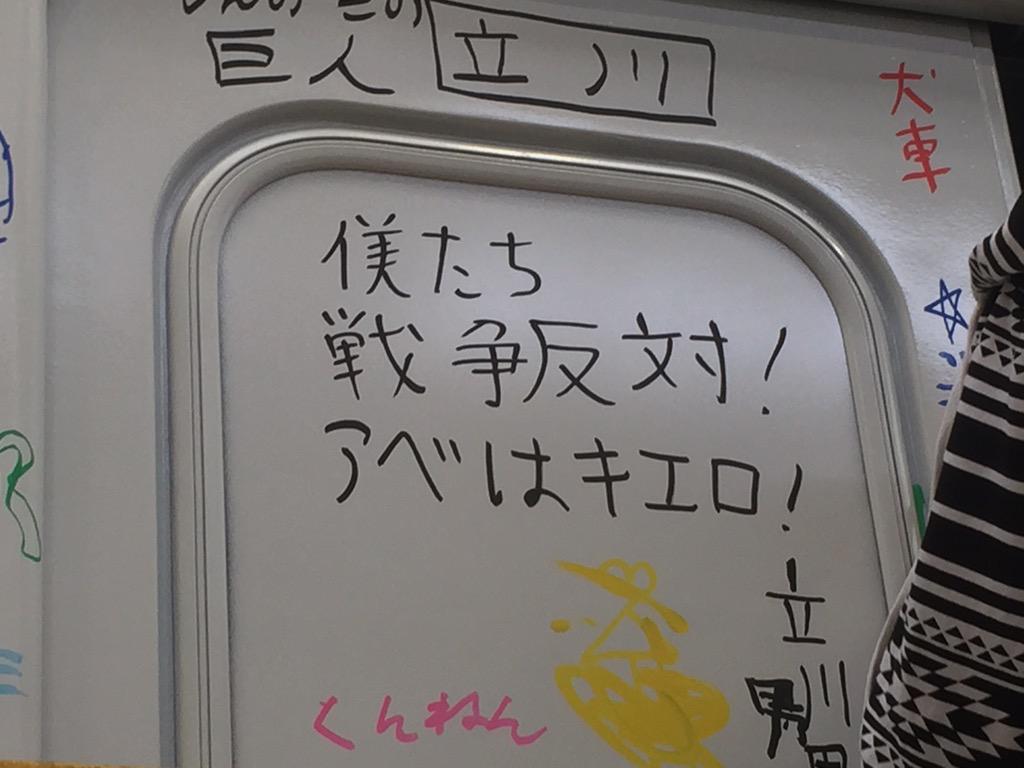 巨人 立川
犬車
僕たち
戦争反対!
アベはキエロ!
立
川
くんねん